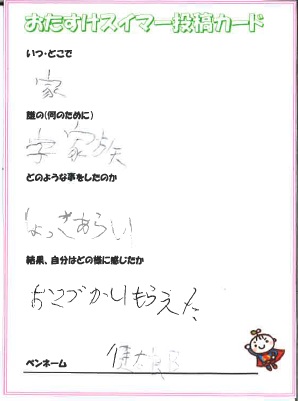 おたすけスイマー投稿カード
いつ・どこで
家
誰の(何のために)
家族
どのような事をしたのか
しょっきあらい
結果、自分はどの様に感じたか
おこづかいもらえた
ペンネーム
健太郎